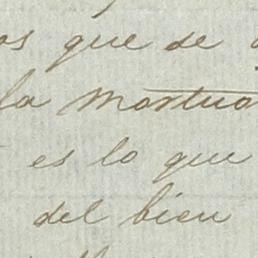 os que se
la mortuo
es lo que
del bien